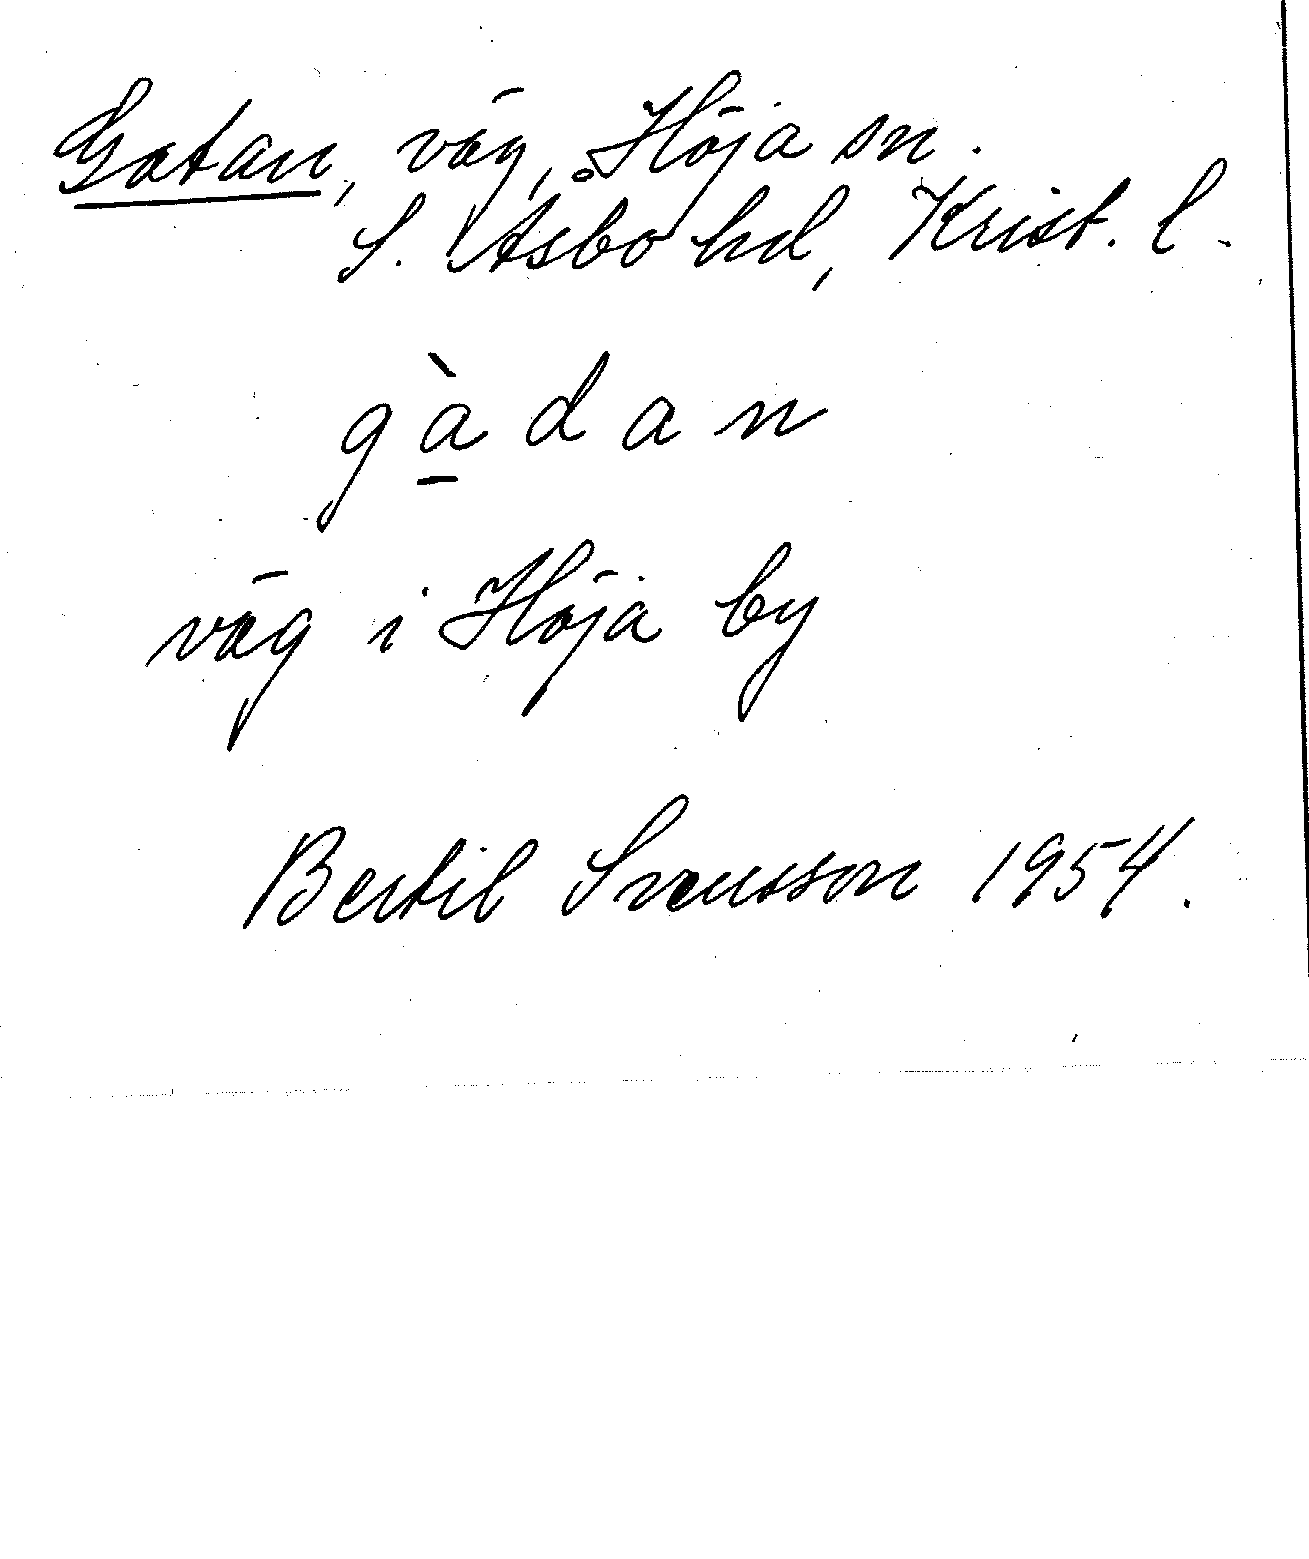 Gatan, väg, Höja sn.
S. Åsbo hd, Krist. l.
gà̱dan
väg i Höja by
Bertil Svensson 1954.